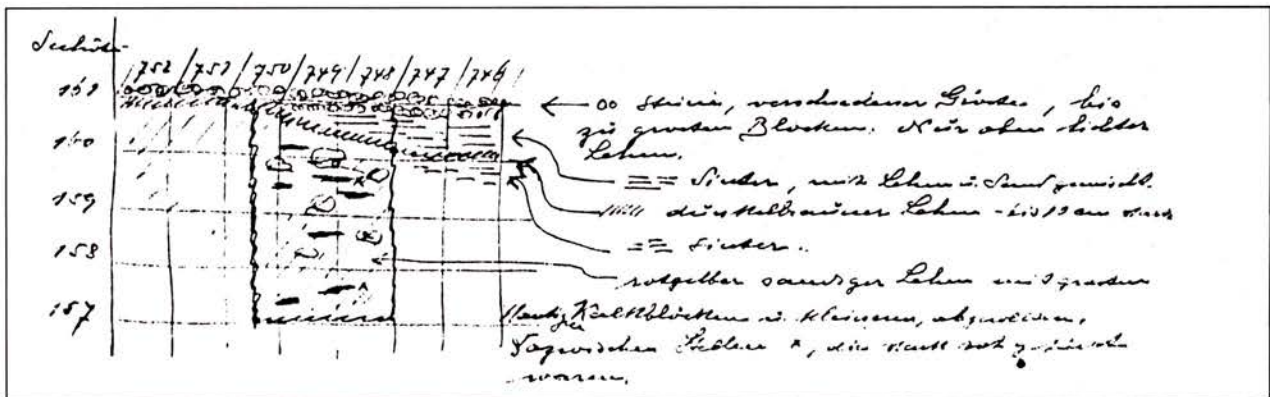 Seehöhe
752 / 751 / 750 / 749 / 748 / 747 / 746
161
160
159
158
157
oo Steine, verschiedener Grösse, bis
zu grossen Blöcken. Nur oben lichter
Lehm.
Sinter, mit Lehm u. Sand gemischt.
dunkelbrauner Lehm - bis 10 cm stark
Sinter.
rotgelber sandiger Lehm mit grossen
Kalkblöcken u. kleineren,
Dazwischen x, die stark rot
waren.